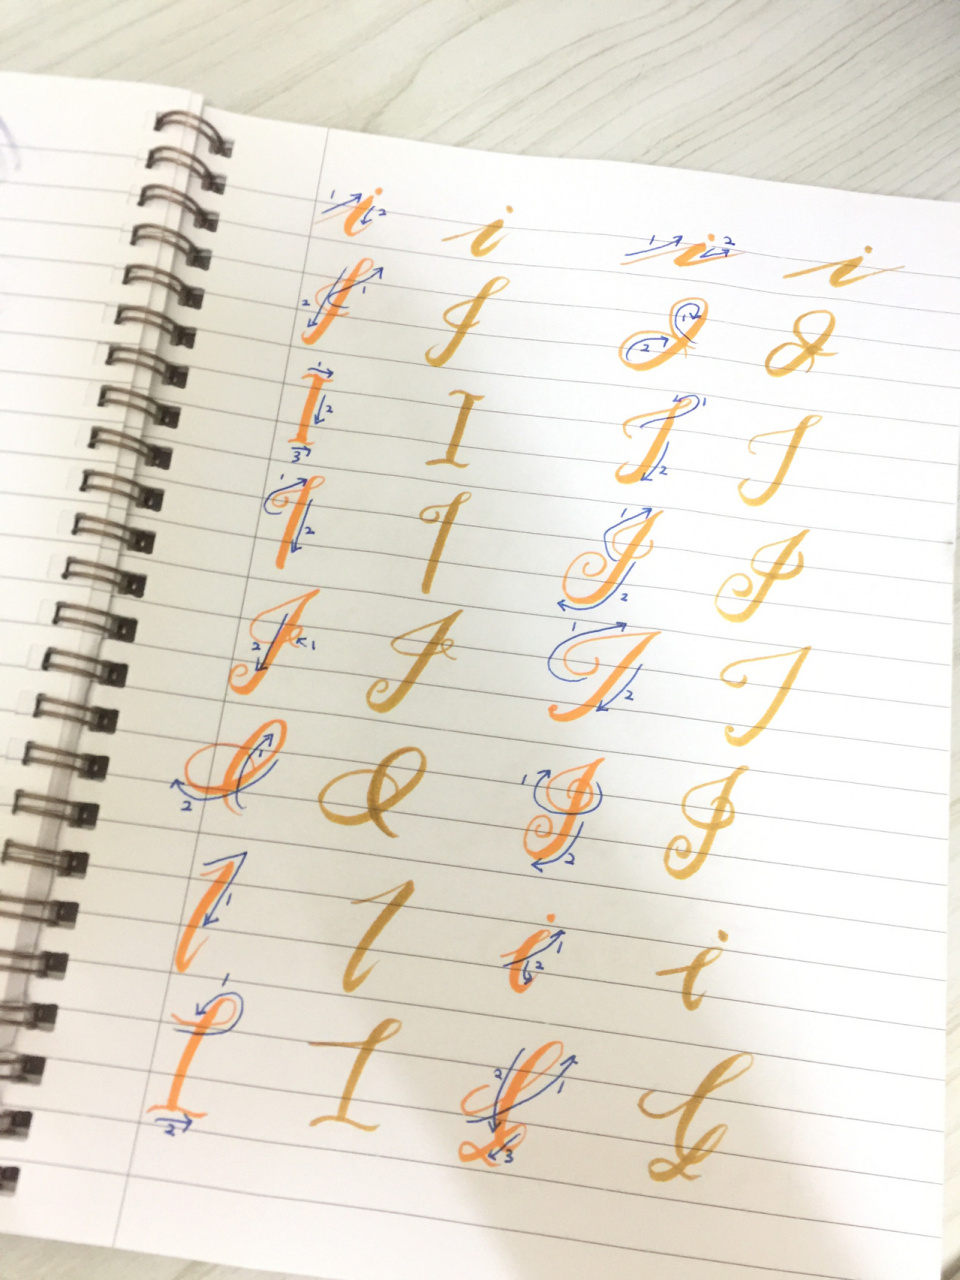 1 i 2 i 1 i 2 i
2 I 1 I 1 2 I I
1 I 2 3 I I 1 2 I
1 I 2 I 1 I 2 I
I 2 1 I 1 I 2 I
I 1 2 I 1 I 2 I
I 1 I i 1 2 i
1 I 2 I 2 I 1 3 I